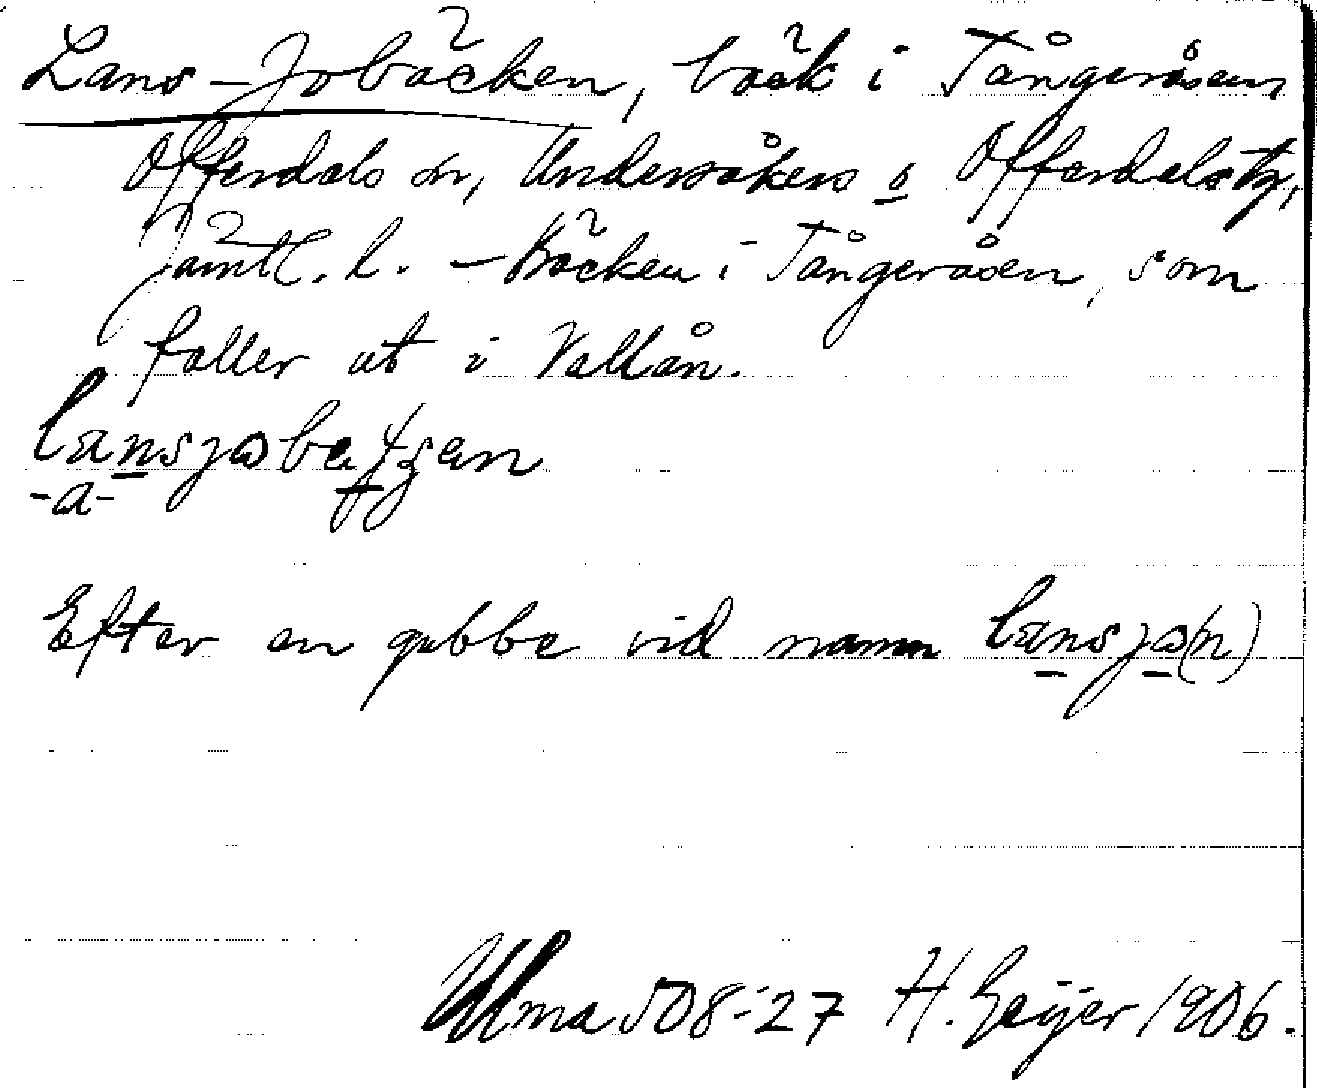 Lans-Jobäcken, bäck i Tångeråsen,
Offerdals sn, Undersåkers o Offerdals tg,
Jämtl. l. - Bäcken i Tångeråsen, som
faller ut i Vallån.
lansjωbatʃʒan
-a-
Efter en gubbe vid namn lansjω(n)
Ulma 508:27 H. Geijer 1906.